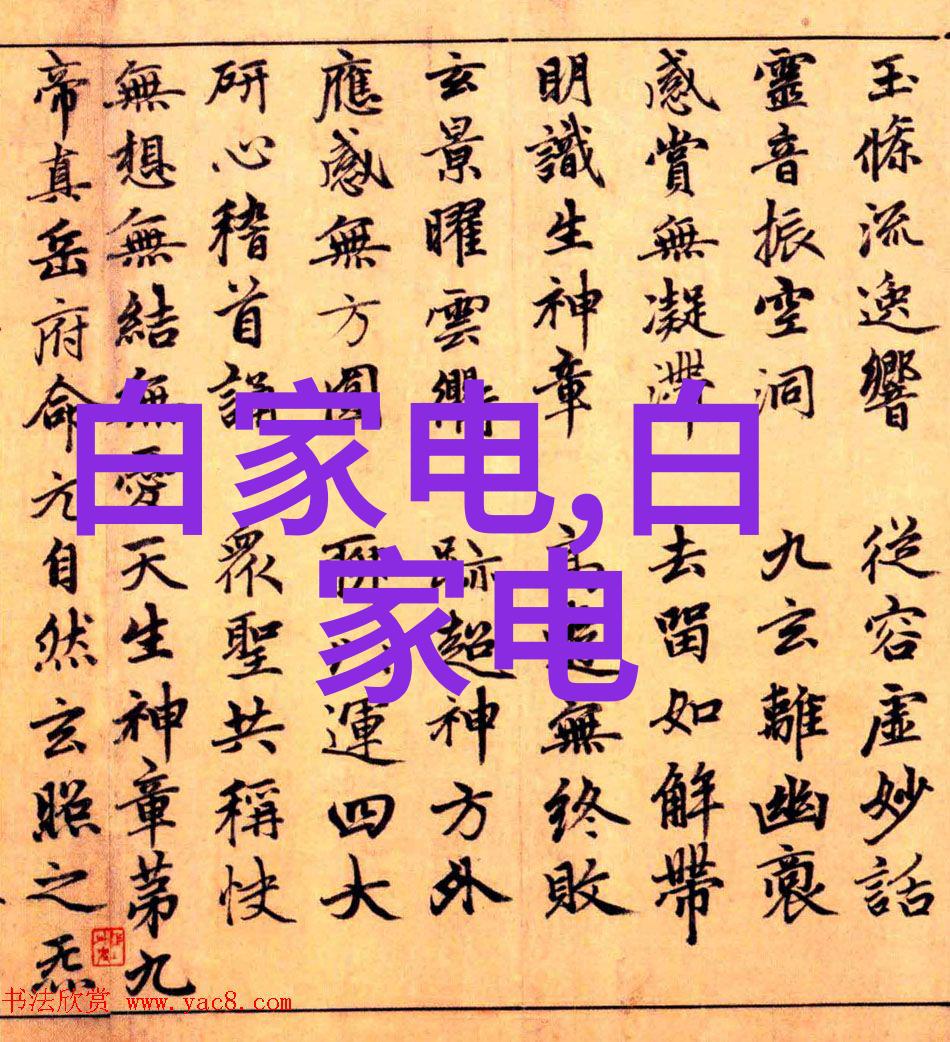 玉條流逸響 從容虛妙話
靈音振空洞 九玄離幽
感賞無凝滯 去留如解帶
明識生神章 無終敗
玄景曜雲 跡超神方外
應感無方圓 運四大
研心稽首誦 衆聖共稱快
無想無結無愛天生神章第九
帝真岳府命元自然玄照之炁
白家电,白
家电
书法欣赏 www.yac8.com